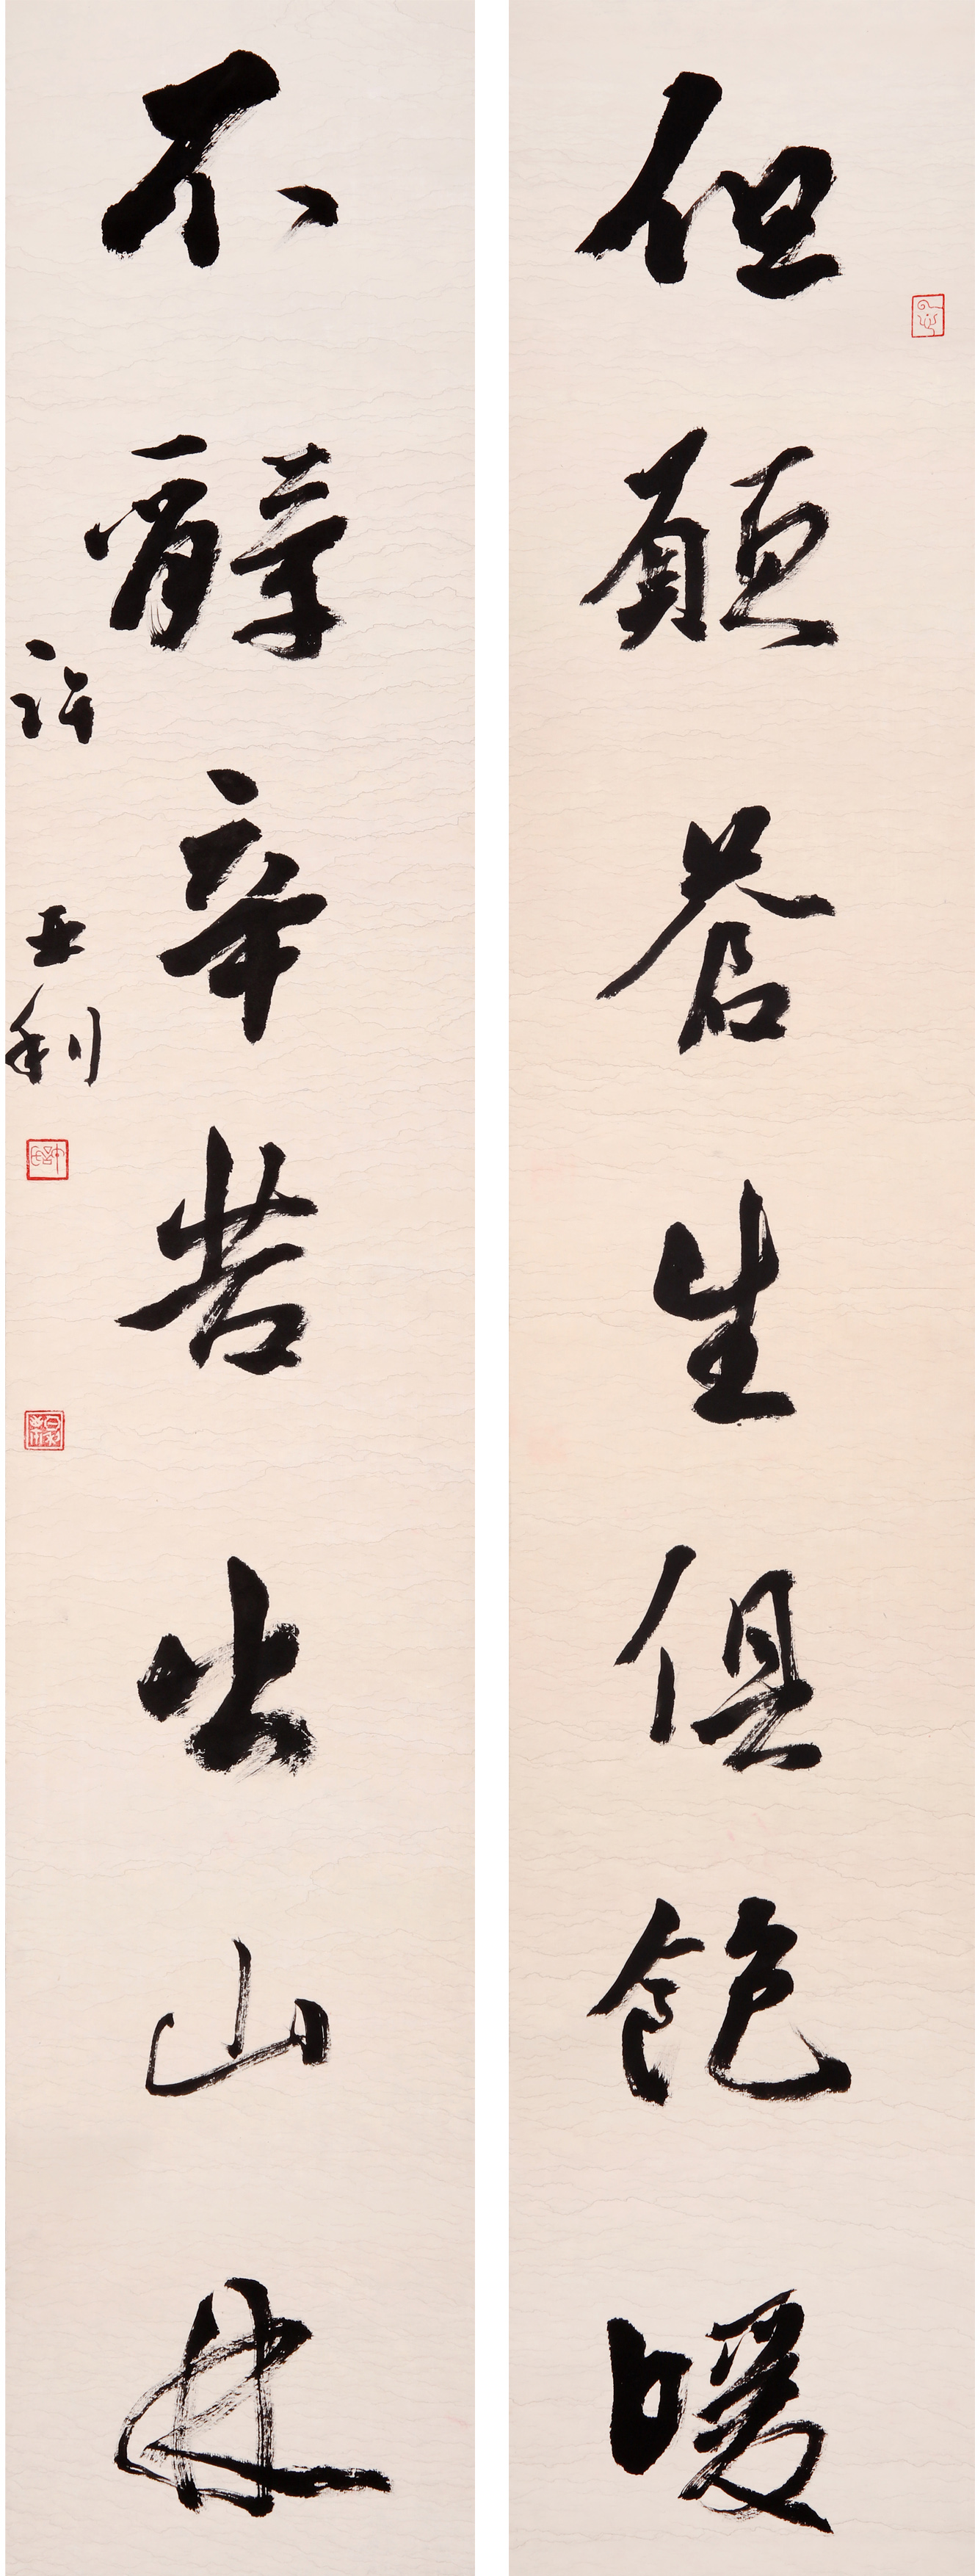 但願蒼生俱飽暖
不辭辛苦出山林
許亞利